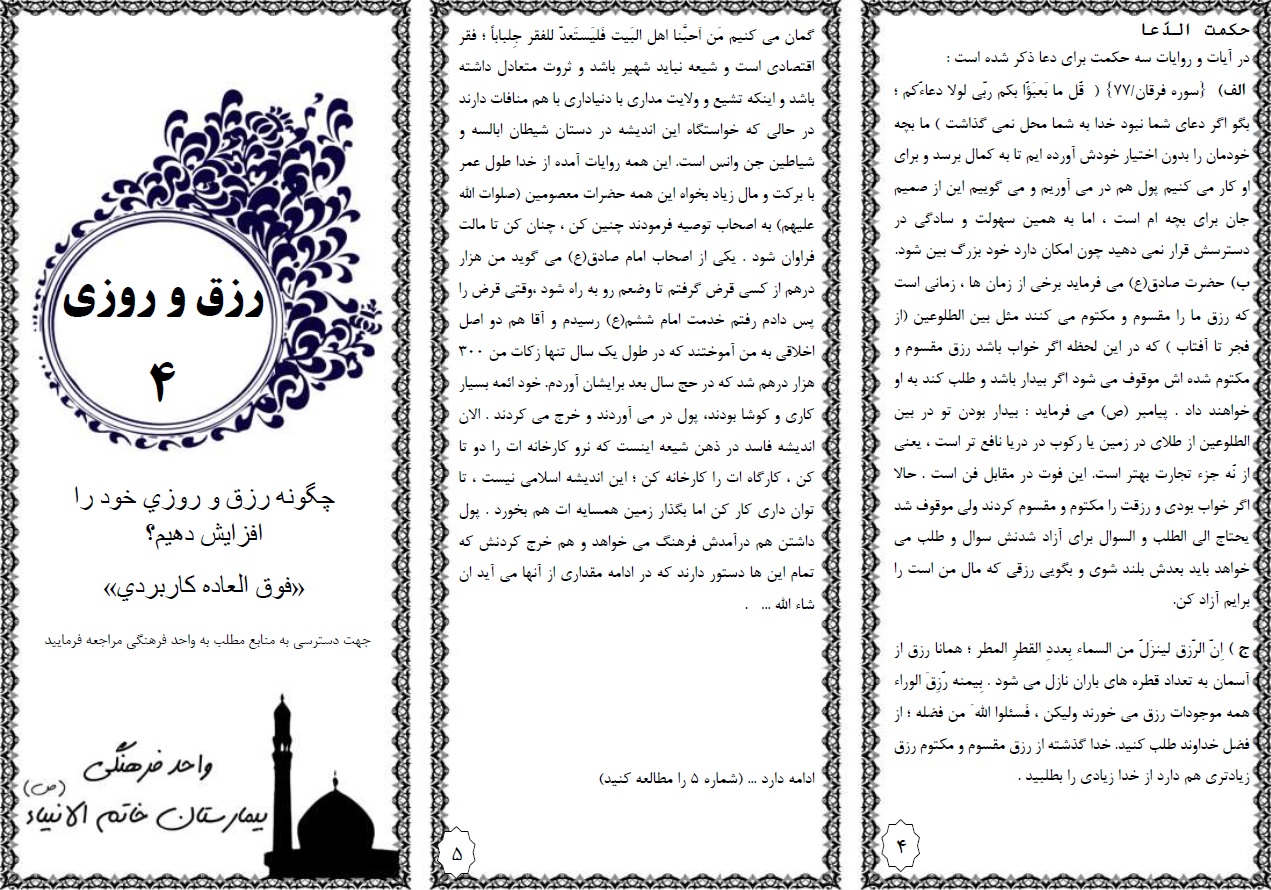 حکمت الدّعا
در آیات و روایات سه حکمت برای دعا ذکر شده است :
الف) {سوره فرقان/۷۷} ( قّل ما یَعبَؤّا بکم ربّی لولا دعاءّکم ؛
بگو اگر دعای شما نبود خدا به شما محل نمی گذاشت ) ما بچه
خودمان را بدون اختیار خودش آورده ایم تا به کمال برسد و برای
او کار می کنیم پول هم در می آوریم و می گوییم این از صمیم
جان برای بچه ام است ، اما به همین سهولت و سادگی در
دسترسش قرار نمی دهید چون امکان دارد خود بزرگ بین شود.
ب) حضرت صادق(ع) می فرماید برخی از زمان ها ، زمانی است
که رزق ما را مقسوم و مکتوم می کنند مثل بین الطلوعین (از
فجر تا آفتاب ) که در این لحظه اگر خواب باشد رزق مقسوم و
مکتوم شده اش موقوف می شود اگر بیدار باشد و طلب کند به او
خواهند داد . پیامبر (ص) می فرماید : بیدار بودن تو در بین
الطلوعین از طلای در زمین یا رکوب در دریا نافع تر است ، یعنی
از نّه جزء تجارت بهتر است. این فوت در مقابل فن است . حالا
اگر خواب بودی و رزقت را مکتوم و مقسوم کردند ولی موقوف شد
یحتاج الی الطلب و السوال برای آزاد شدنش سوال و طلب می
خواهد باید بعدش بلند شوی و بگویی رزقی که مال من است را
برایم آزاد کن.
ج ) اِنّ الرّزق لینزَلّ من السماء بِعددِ القطرِ المطر ؛ همانا رزق از
آسمان به تعداد قطره های باران نازل می شود . بِیمنه رّزِقَ الوراء
همه موجودات رزق می خورند ولیکن ، فَسئلوا اللهَ من فضله ؛ از
فضل خداوند طلب کنید. خدا گذشته از رزق مقسوم و مکتوم رزق
زیادتری هم دارد از خدا زیادی را بطلبید .
۴
گمان می کنیم مَن اَحبَّنا اهل البَیت فَلیَستَعدّ للفقر جِلباباً ؛ فقر
اقتصادی است و شیعه نباید شهیر باشد و ثروت متعادل داشته
باشد و اینکه تشیع و ولایت مداری با دنیاداری با هم منافات دارند
در حالی که خواستگاه این اندیشه در دستان شیطان ابالسه و
شیاطین جن وانس است. این همه روایات آمده از خدا طول عمر
با برکت و مال زیاد بخواه این همه حضرات معصومین (صلوات الله
علیهم) به اصحاب توصیه فرمودند چنین کن ، چنان کن تا مالت
فراوان شود . یکی از اصحاب امام صادق(ع) می گوید من هزار
درهم از کسی قرض گرفتم تا وضعم رو به راه شود ،وقتی قرض را
پس دادم رفتم خدمت امام ششم(ع) رسیدم و آقا هم دو اصل
اخلاقی به من آموختند که در طول یک سال تنها زکات من ۳۰۰
هزار درهم شد که در حج سال بعد برایشان آوردم. خود ائمه بسیار
کاری و کوشا بودند، پول در می آوردند و خرج می کردند . الان
اندیشه فاسد در ذهن شیعه اینست که نرو کارخانه ات را دو تا
کن ، کارگاه ات را کارخانه کن ؛ این اندیشه اسلامی نیست ، تا
توان داری کار کن اما بگذار زمین همسایه ات هم بخورد . پول
داشتن هم درآمدش فرهنگ می خواهد و هم خرج کردنش که
تمام این ها دستور دارند که در ادامه مقداری از آنها می آید ان
شاء الله ... .
ادامه دارد ... (شماره ۵ را مطالعه کنید)
۵
رزق و روزی
۴
چگونه رزق و روزي خود را
افزایش دهیم؟
«فوق العاده کاربردي»
جهت دسترسی به منابع مطلب به واحد فرهنگی مراجعه فرمایید
واحد فرهنگی
بیمارستان خاتم الانبیاء (ص)